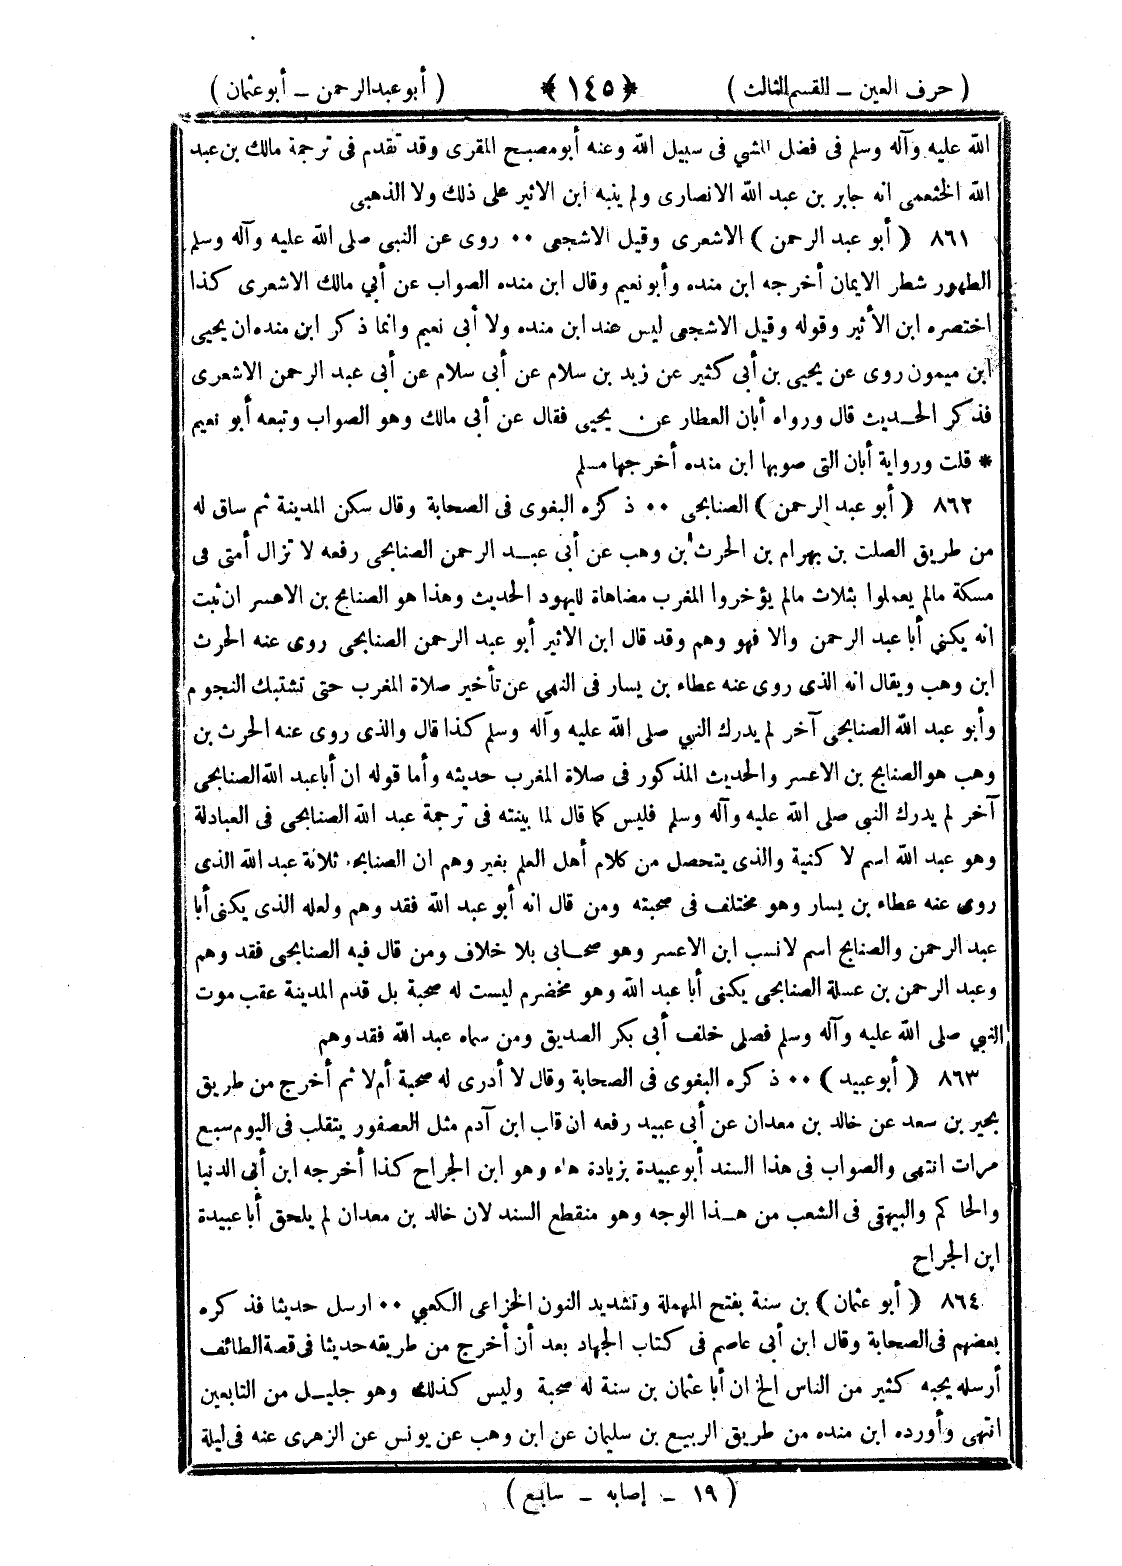 ( حرف العين ــ القسم الثالث ) ﴿ ١٤٥ ﴾ ( أبو عبدالرحمن ــ أبو عثمان )
الله عليه وآله وسلم فى فضل المشي فى سبيل الله وعنه أبو مصبح المقرى وقد تقدم فى ترجمة مالك بن عبد
الله الخثعمى انه جابر بن عبد الله الانصارى ولم ينبه ابن الاثير على ذلك ولا الذهبى
٨٦١ ( أبو عبد الرحمن ) الاشعرى وقيل الاشجعى ٠٠ روى عن النبى صلى الله عليه وآله وسلم
الطهور شطر الايمان أخرجه ابن منده وأبو نعيم وقال ابن منده الصواب عن أبي مالك الاشعرى كذا
اختصره ابن الأثير وقوله وقيل الاشجعى ليس عند ابن منده ولا أبى نعيم وانما ذكر ابن منده ان يحيى
ابن ميمون روى عن يحيى بن أبى كثير عن زيد بن سلام عن أبى سلام عن أبى عبد الرحمن الاشعرى
فذكر الحـديث قال ورواه أبان العطار عن يحيى فقال عن أبى مالك وهو الصواب وتبعه أبو نعيم
* قلت ورواية أبان التى صوبها ابن منده أخرجها مسلم
٨٦٢ ( أبو عبد الرحمن ) الصنابحى ٠٠ ذكره البغوى فى الصحابة وقال سكن المدينة ثم ساق له
من طريق الصلت بن بهرام بن الحرث بن وهب عن أبى عبـد الرحمن الصنابحى رفعه لا تزال أمتى فى
مسكة مالم يعملوا بثلاث مالم يؤخروا المغرب مضاهاة لليهود الحديث وهذا هو الصنابح بن الاعسر ان ثبت
انه يكنى أبا عبد الرحمن والا فهو وهم وقد قال ابن الاثير أبو عبد الرحمن الصنابحى روى عنه الحرث
ابن وهب ويقال انه الذى روى عنه عطاء بن يسار فى النهي عن تأخير صلاة المغرب حتى تشتبك النجوم
وأبو عبد الله الصنابحى آخر لم يدرك النبي صلى الله عليه وآله وسلم كذا قال والذى روى عنه الحرث بن
وهب هو الصنابح بن الاعسر والحديث المذكور فى صلاة المغرب حديثه وأما قوله ان أبا عبد الله الصنابحى
آخر لم يدرك النبى صلى الله عليه وآله وسلم فليس كما قال لما بينته فى ترجمة عبد الله الصنابحى فى العبادلة
وهو عبد الله اسم لا كنية والذى يتحصل من كلام أهل العلم بغير وهم ان ثلاثة عبد الله الذى
روى عنه عطاء بن يسار وهو مختلف فى صحبته ومن قال انه أبو عبد الله فقد وهم ولعله الذى يكنى أبا
عبد الرحمن والصنابح اسم لا نسب ابن الاعسر وهو صحـابى بلا خلاف ومن قال فيه الصنابحى فقد وهم
وعبد الرحمن بن عسلة الصنابحى يكنى أبا عبد الله وهو مخضرم ليست له صحبة بل قدم المدينة عقب موت
النبي صلى الله عليه وآله وسلم فصلى خلف أبى بكر الصديق ومن سماه عبد الله فقد وهم
٨٦٣ ( أبو عبيد ) ٠٠ ذكره البغوى فى الصحابة وقال لا أدرى له صحبة أم لا ثم أخرج من طريق
بحير بن سعد عن خالد بن معدان عن أبى عبيد رفعه ان قاب ابن آدم مثل العصفور يتقلب فى اليوم سبع
مرات انتهى والصواب فى هذا السند أبو عبيدة بزيادة هاء وهو ابن الجراح كذا أخرجه ابن أبى الدنيا
والحاكم والبيهقى فى الشعب من هـذا الوجه وهو منقطع السند لان خالد بن معدان لم يلحق أبا عبيدة
ابن الجراح
٨٦٤ ( أبو عثمان ) بن سنة بفتح المهملة وتشديد النون الخزاعى الكعبي ٠٠ ارسل حديثا فذكره
بعضهم فى الصحابة وقال ابن أبى عاصم فى كتاب الجهاد بعد أن أخرج من طريقه حديثا فى قصة الطائف
أرسله يحبه كثير من الناس الخ ان أبا عثمان بن سنة له صحبة وليس كذلك وهو جليـل من التابعين
انتهى وأورده ابن منده من طريق الربيع بن سليمان عن ابن وهب عن يونس عن الزهرى عنه فى ليلة
( ١٩ ــ إصابه ــ سابع )